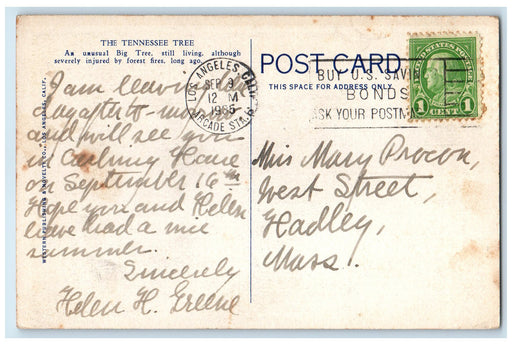 THE TENNESSEE TREE
An unusual Big Tree, still living, although
severely injured by forest fires, long ago.
I am leaving
day after to-mor
and will see you
in
on September 16th
Hope you and Helen
have had a nice
summer.
Sincerely
Helen H. Greene
WESTERN PUBLISHING & NOVELTY CO., LOS ANGELES, CALIF.
POST CARD
THIS SPACE FOR ADDRESS ONLY
LOS ANGELES CALIF.
SEP 9
12 M
1935
ARCADE STA.
BUY U.S. SAVIN
BONDS
ASK YOUR POSTM
UNITED STATES POSTAGE
1 CENT 1
Miss Mary Procon,
West Street,
Hadley,
Mass.